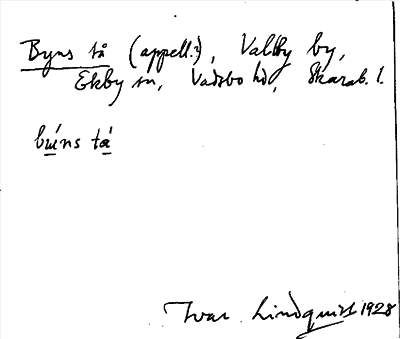 Byns tå (appell.?), Valtby by,
Ekby sn, Vadsbo hd, Skarab. l.
bẃns tá
Ivar Lindquist 1928